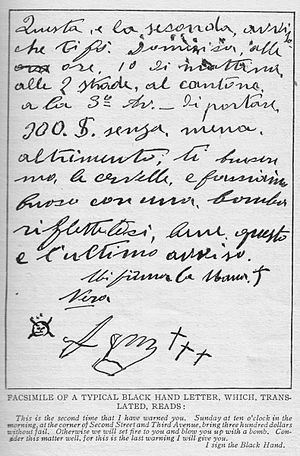 Questa, e la seconda, avviso
che ti fo. Dominica, alle
ore, 10 di mattina,
alle 2 strade, al cantone,
a la 3ª Av. — di portare
300. $. senza mena.
altrimento, ti
mo, la cervelle, e
con una, bomba
questo
e l'ultimo avviso.
Mi firma la Mano
Nera
FACSIMILE OF A TYPICAL BLACK HAND LETTER, WHICH, TRANS-
LATED, READS:
This is the second time that I have warned you. Sunday at ten o'clock in the
morning, at the corner of Second Street and Third Avenue, bring three hundred dollars
without fail. Otherwise we will set fire to you and blow you up with a bomb. Con-
sider this matter well, for this is the last warning I will give you.
I sign the Black Hand.